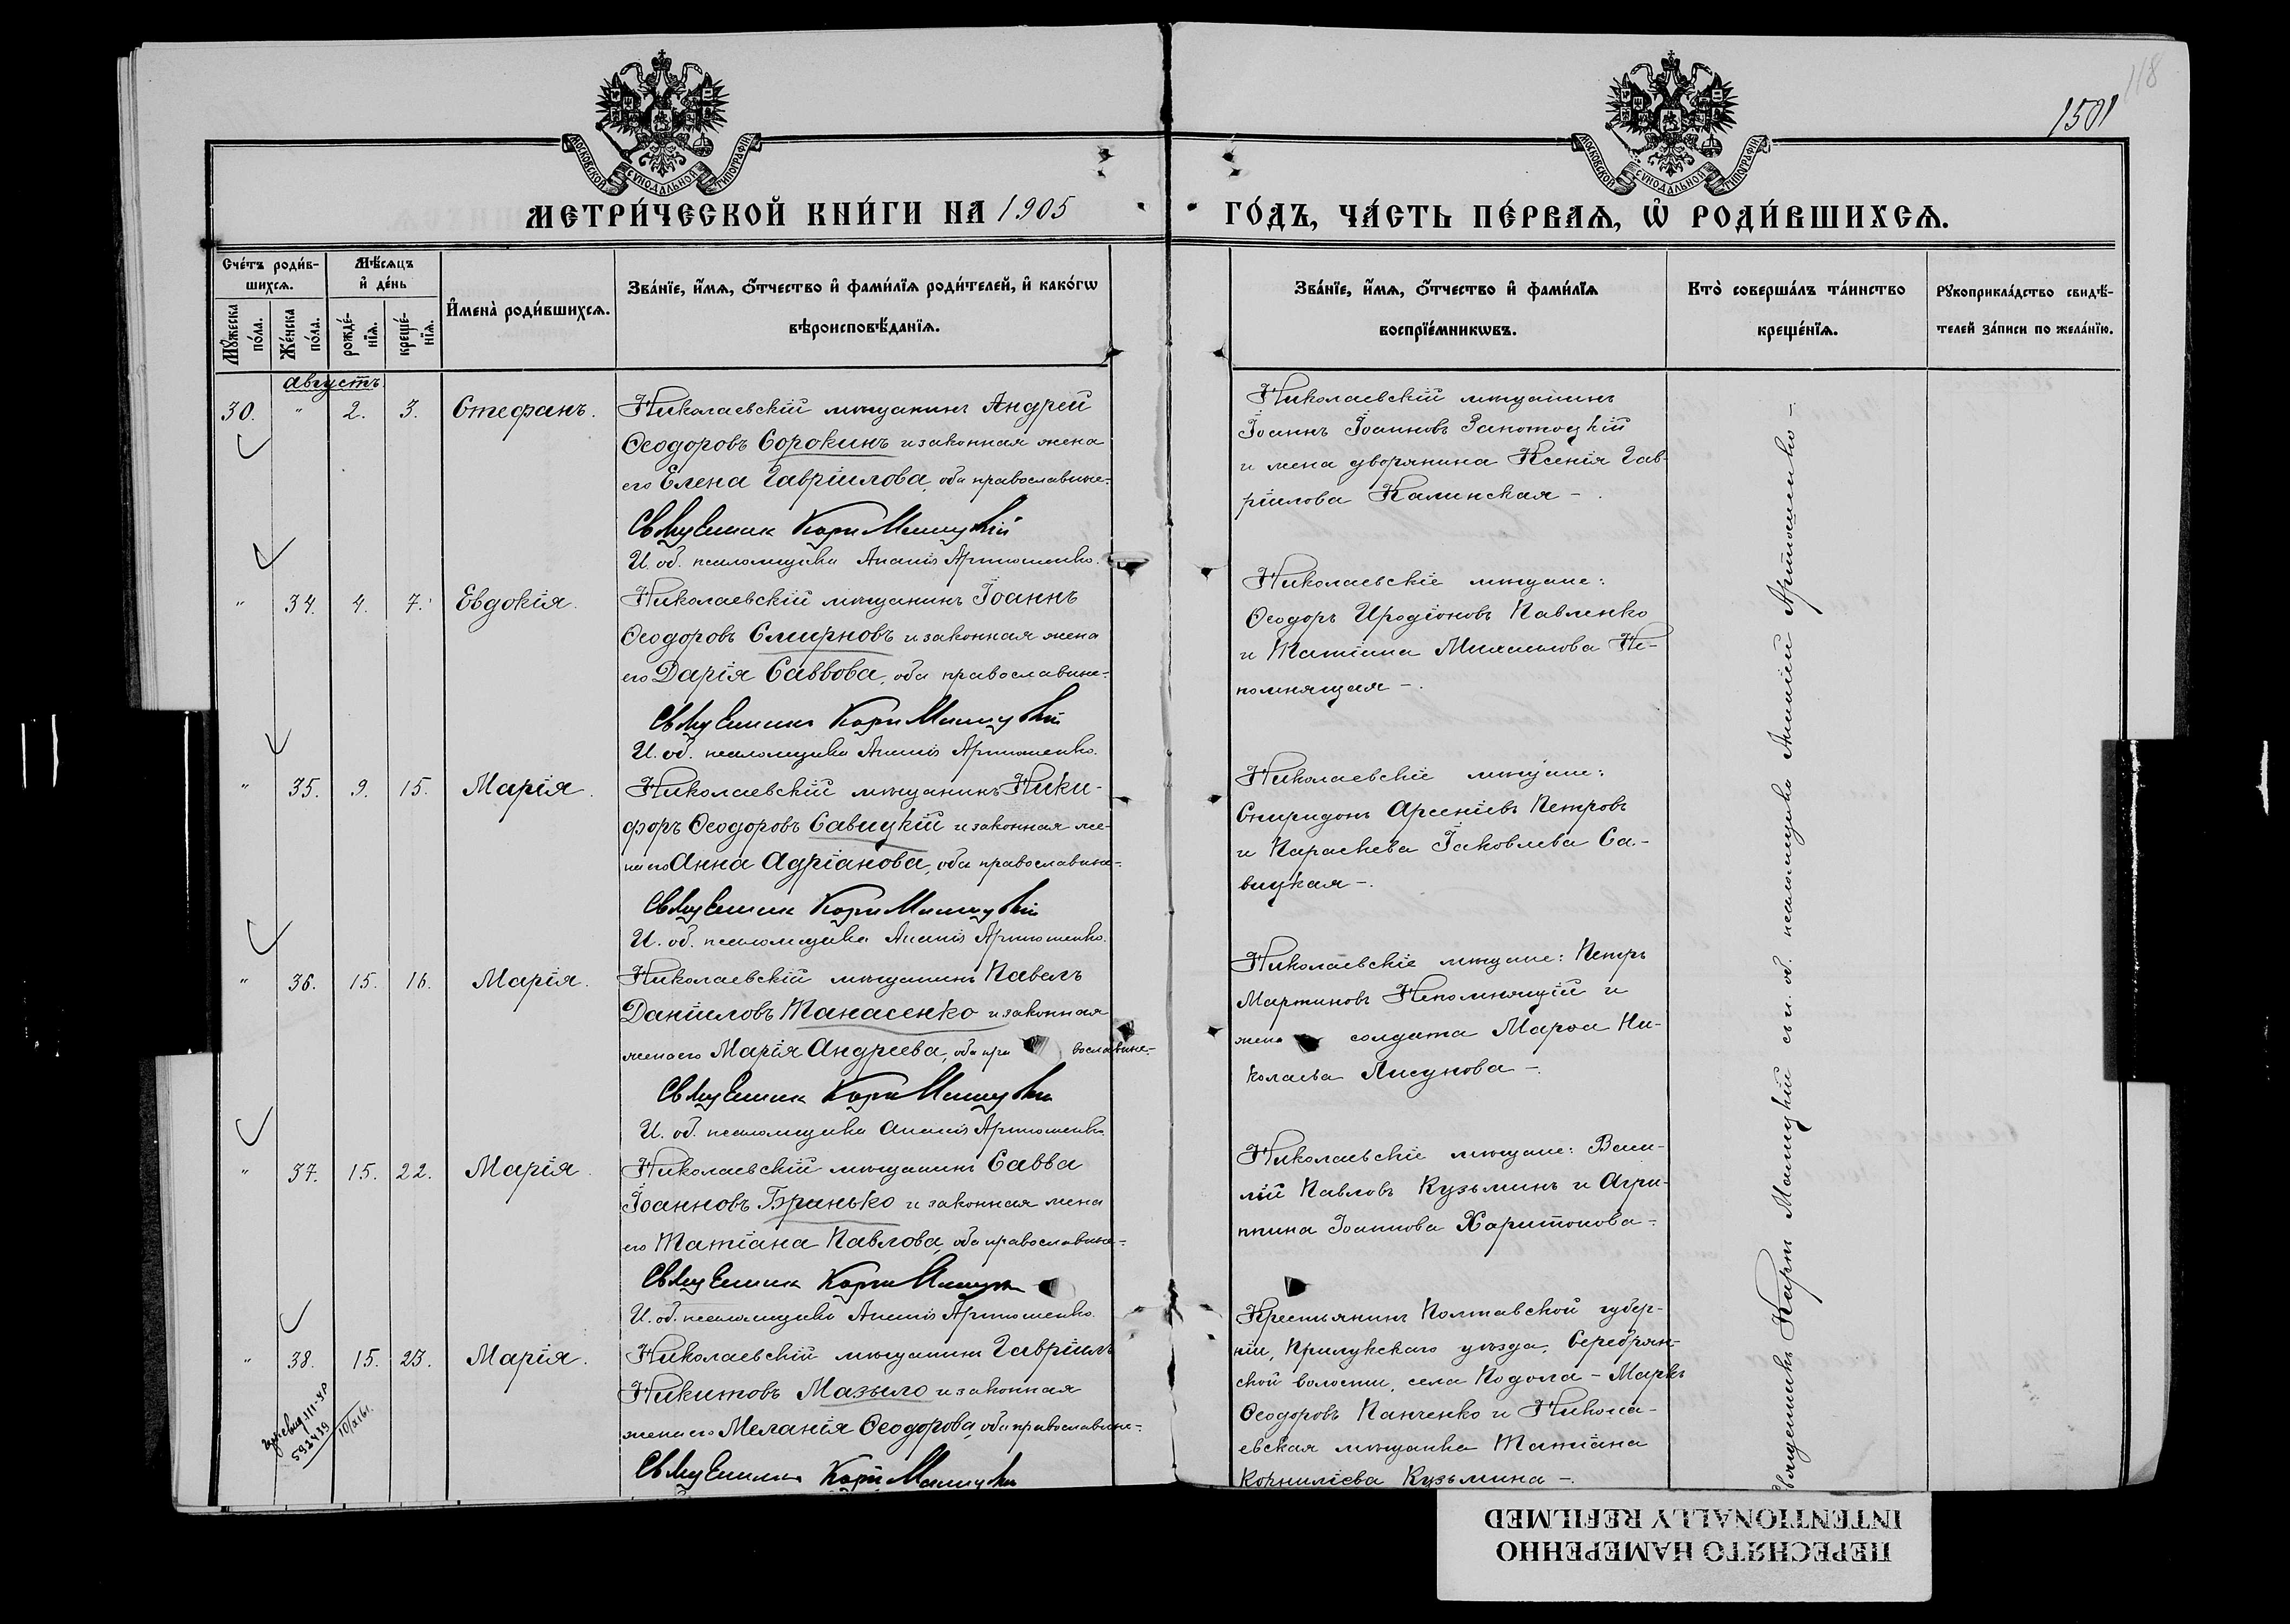 118
1501
МОСКОВСКОЙ СѴНОДАЛЬНОЙ ТИПОГРАФІИ
МОСКОВСКОЙ СѴНОДАЛЬНОЙ ТИПОГРАФІИ
МЕТРИ́ЧЕСКОЙ КНИ́ГИ НА 1905
ГО́ДЪ, ЧА́СТЬ ПЕ́РВАѦ, Ѡ҆ РОДИ́ВШИХСѦ.
Сче́тъ роди́в-
шихсѧ.
Мѣ́сѧцъ
и҆ де́нь
Мꙋ́жеска по́ла.
Же́нска по́ла.
рожде́-нїѧ.
креще́-нїѧ.
И҆мена̀ роди́вшихсѧ.
Зва́нїе, и҆́мѧ, ѻ҆́тчество и҆ фами́лїѧ роди́телей, и҆ како́гѡ
вѣроисповѣ́данїѧ.
Зва́нїе, и҆́мѧ, ѻ҆́тчество и҆ фами́лїѧ
воспрїе́мникѡвъ.
Кто̀ соверша́лъ та́инство
креще́нїѧ.
Рꙋкоприкла́дство свидѣ́-
телей за́писи по жела́нїю.
Августъ
30. " 2. 3. Стефанъ.
Николаевскій мѣщанинъ Андрей
Ѳеодоровъ Сорокинъ и законная жена
его Елена Гавріилова, оба православные.
Священникъ Карпъ Машуцкій
И. об. псаломщика Ананій Артюшенко.
Николаевскій мѣщанинъ
Іоаннъ Іоанновъ Запотоцкій
и жена дворянина Ксенія Гав-
ріилова Калинская -.
" 34. 4. 7. Евдокія.
Николаевскій мѣщанинъ Іоаннъ
Ѳеодоровъ Смирновъ и законная жена
его Дарія Саввова, оба православные.
Священникъ Карпъ Машуцкій
И. об. псаломщика Ананій Артюшенко.
Николаевскіе мѣщане:
Ѳеодоръ Иродіоновъ Павленко
и Татіана Михаилова Не-
помнящая -.
" 35. 9. 15. Марія.
Николаевскій мѣщанинъ Ники-
форъ Ѳеодоровъ Савицкій и законная же-
на его Анна Адріанова, оба православные.
Священникъ Карпъ Машуцкій
И. об. псаломщика Ананій Артюшенко.
Николаевскіе мѣщане:
Спиридонъ Арсеніевъ Петровъ
и Параскева Іаковлева Са-
вицкая -.
" 36. 15. 16. Марія.
Николаевскій мѣщанинъ Павелъ
Даніиловъ Танасенко и законная
жена его Марія Андреева, оба православные.
Священникъ Карпъ Машуцкій
И. об. псаломщика Ананій Артюшенко.
Николаевскіе мѣщане: Петръ
Мартиновъ Непомнящій и
жена солдата Марѳа Ни-
колаева Лисунова -.
" 37. 15. 22. Марія.
Николаевскій мѣщанинъ Савва
Іоанновъ Бринько и законная жена
его Татіана Павлова, оба православные.
Священникъ Карпъ
И. об. псаломщика Ананій Артюшенко.
Николаевскіе мѣщане: Васи-
лій Павловъ Кузьминъ и Агри-
ппина Іоаннова Харитонова -
" 38. 15. 23. Марія.
Николаевскій мѣщанинъ Гавріилъ
Никитовъ Мазыло и законная
жена его Меланія Ѳеодорова, оба православные.
Священникъ Карпъ Машуцкій
Крестьянинъ Полтавской губер-
ніи, Прилукскаго уѣзда, Серебрян-
ской волости, села Подола - Маркъ
Ѳеодоровъ Панченко и Никола-
евская мѣщанка Татіана
Корниліева Кузьмина -.
592439
10/XI61.
Священникъ Карпъ Машуцкій съ и. об. псаломщика Ананіемъ Артюшенко -.
ПЕРЕСНЯТО НАМЕРЕННО
INTENTIONALLY REFILMED